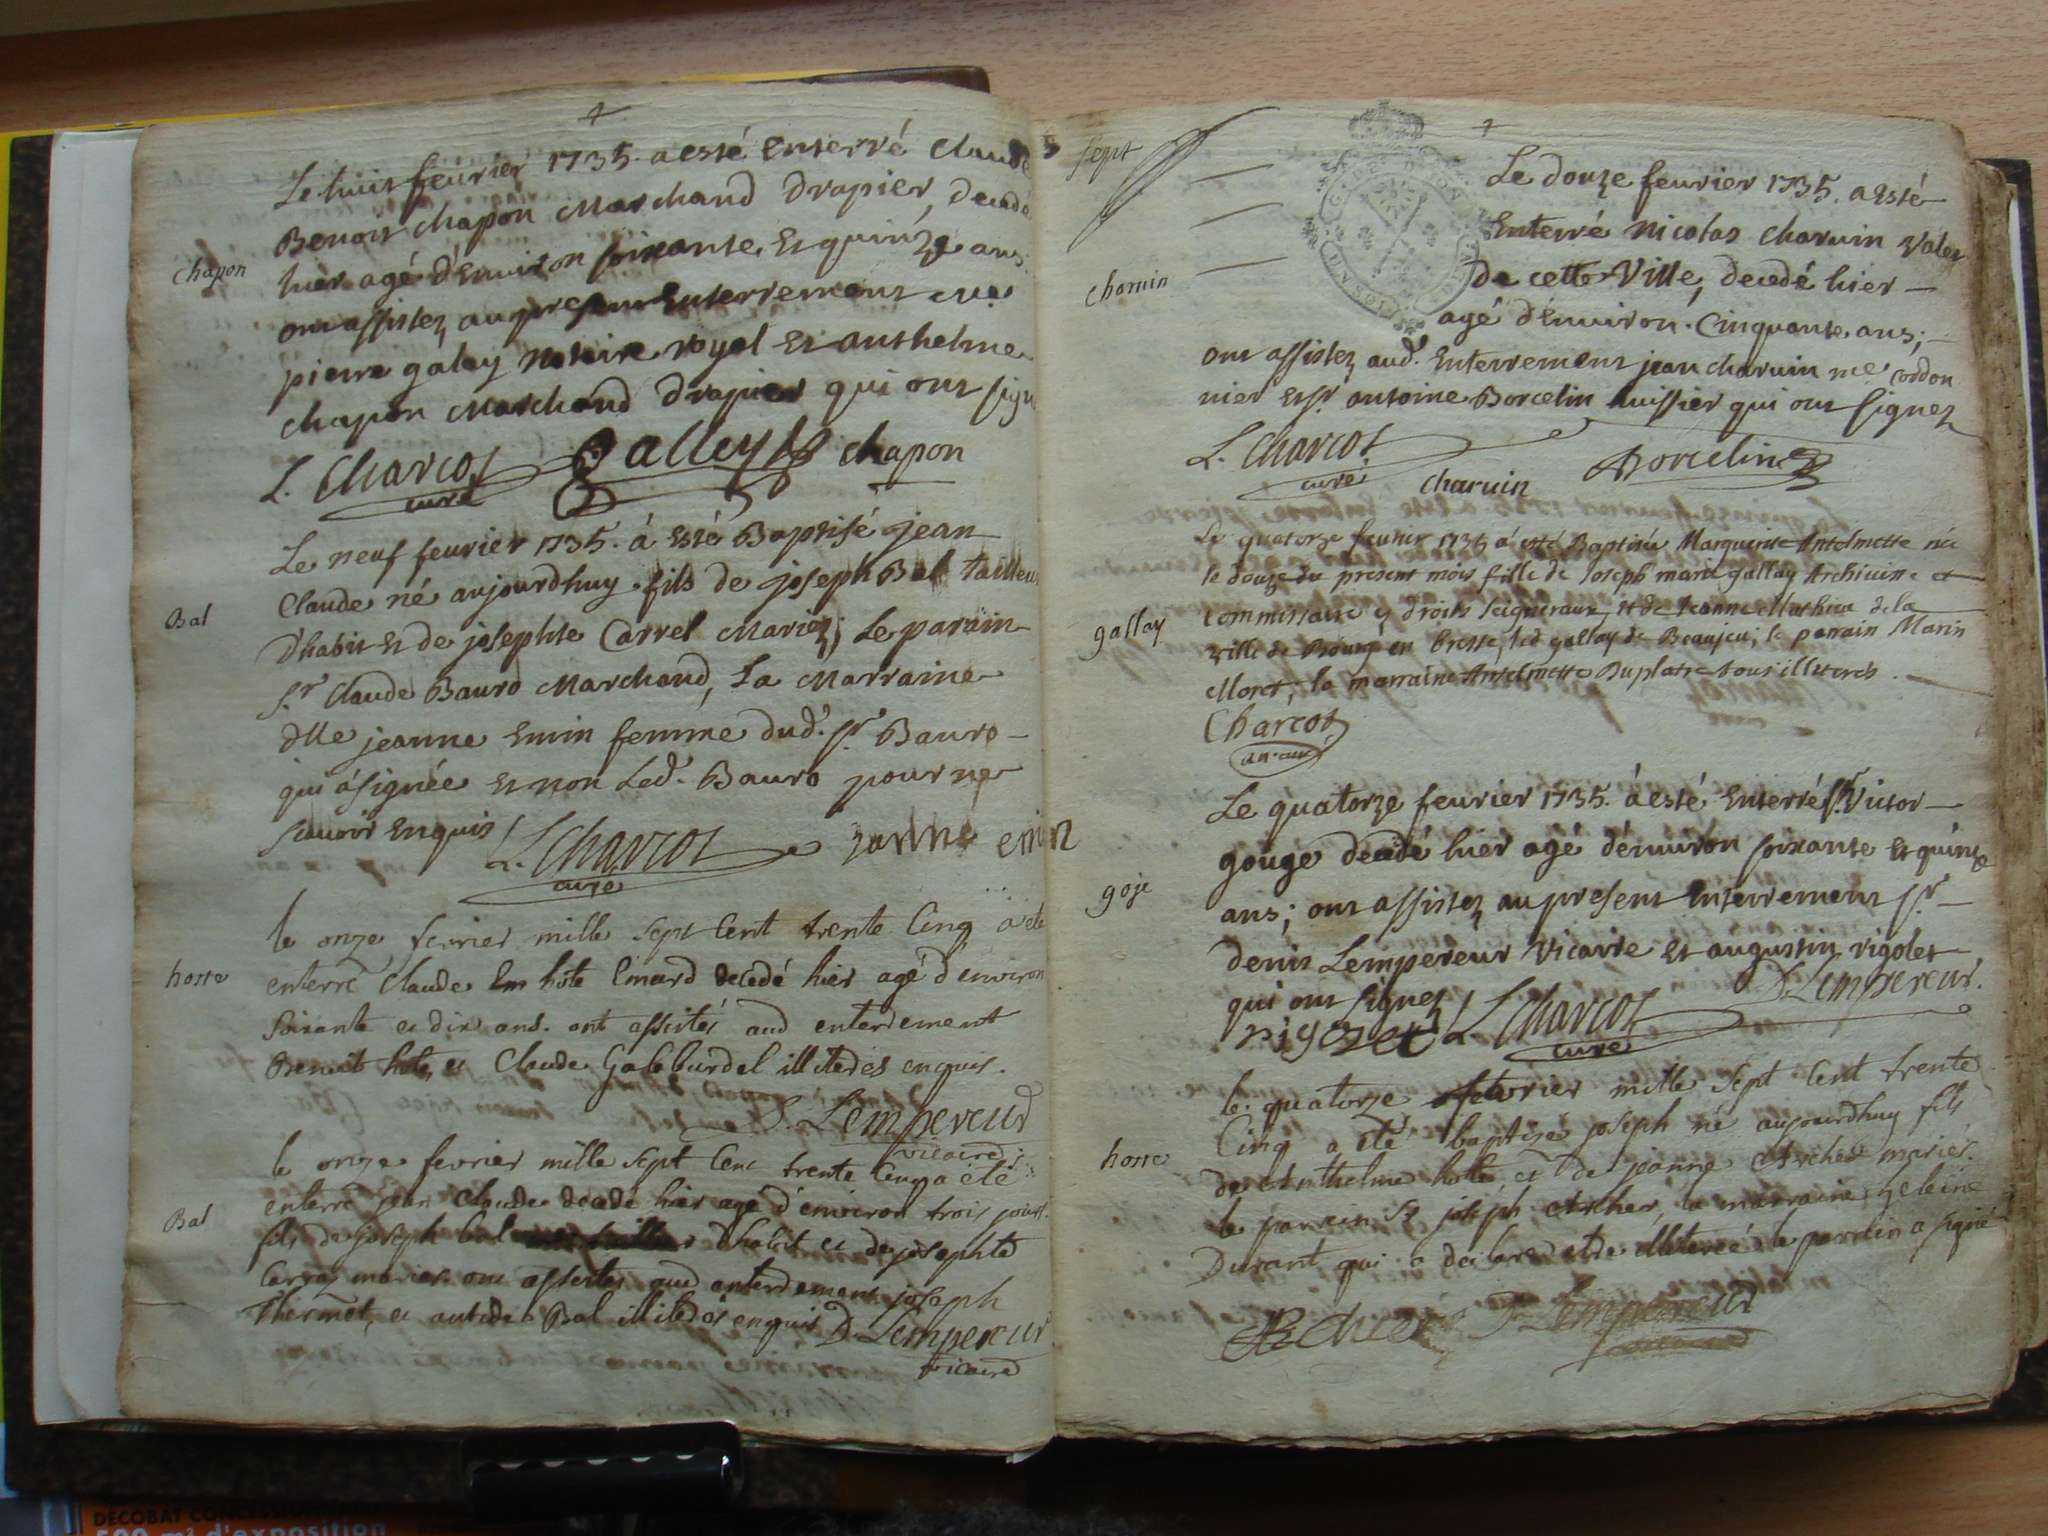 Le huit feurier 1735. a esté Enterré Claude
Benoit chapon Marchand Drapier, decedé
chapon
hier agé d'Enuiron soixante et quinze ans
ont assistez au present Enterrement Me
pierre galey Notaire royal Et anthelme
chapon Marchand Drapier qui ont signé
L. Charcot curé Galley chapon
Le neuf feurier 1735. á esté Baptisé jean
Claude né aujourdhuy fils de joseph Bal tailleur
Bal
D'habit et de josephte Carrel Mariez; Le parain
Sr. Claude Bauro Marchand, La Marraine
dlle jeanne Emin femme dud. Sr. Bauro
qui a signée et non led. Bauro pour ne
scauoir Enquis L. Charcot curé janne emin
le onze fevrier mille sept Cent trente Cinq a eté
hoste
enterré Claude hote Emard decedé hier agé d'environ
soixante et dix ans. ont assistés aud enterrement
Benoit hote et Claude Galeburdel illiterés enquis.
D. Lempereur vicaire
le onze fevrier mille sept Cent trente Cinq a été
enterré jean Claude decedé hier agé d'environ trois jours.
Bal
fils de joseph bal D'habit et de josephte
Carraz mariés. ont assistés aud enterrement joseph
Thermet, et antide Bal illiterés enquis D. Lempereur
vicaire
sept
Le douze feurier 1735. a esté
Enterré Nicolas charuin valet
de cette Ville, decedé hier
charuin
agé d'Enuiron. Cinquante ans;
ont assistez aud. Enterrement jean charuin me cordon
nier et Sr. antoine Borcelin huissier qui ont signez
L. Charcot curé charuin Borcelin
Le quatorze feurier 1735 á esté Baptisée Marguerite Antelmette née
le douze du present mois fille de Joseph marie gallay Archiuiste et
commissaire es droits seigneuraux, et de Jeanne Mathieu de la
gallay
ville de Bourg en bresse, led gallay de Beaujeu; le parrain Marin
Moret, la marraine Antelmette Duplatre tous illiterés.
Charcot
an. curé
Le quatorze feurier 1735. á esté Enterré Sr. Victor
gouge decedé hier agé d'enuiron soixante et quinze
goje
ans; ont assistez au present Enterrement Sr.
denis Lempereur Vicaire et augustin rigolet
qui ont signez D. Lempereur.
rigolet L. Charcot curé
le quatorze fevrier mille sept Cent trente
Cinq a été baptize joseph né aujourdhuy fils
hoste
de Anthelme hote, et de jeanne Archer mariés.
le parrin Sr joseph Archer, la marraine heleine
Durant qui a declaré etre illiterée le parrin a signé
Archer D. Lempereur
DECOBAT CONCESSION
500 m² d'exposition